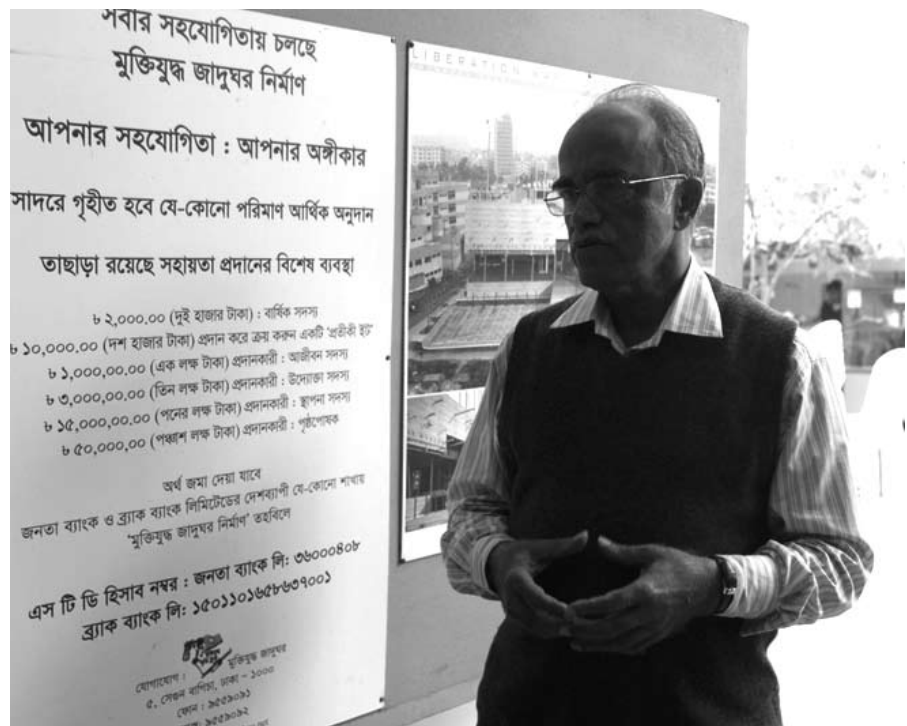 সবার সহযোগিতায় চলছে
মুক্তিযুদ্ধ জাদুঘর নির্মাণ
আপনার সহযোগিতা : আপনার অঙ্গীকার
সাদরে গৃহীত হবে যে-কোনো পরিমাণ আর্থিক অনুদান
তাছাড়া রয়েছে সহায়তা প্রদানের বিশেষ ব্যবস্থা
৳ ২,০০০.০০ (দুই হাজার টাকা) : বার্ষিক সদস্য
৳ ১০,০০০.০০ (দশ হাজার টাকা) প্রদান করে ক্রয় করুন একটি 'প্রতীকী ইট'
৳ ১,০০০,০০.০০ (এক লক্ষ টাকা) প্রদানকারী : আজীবন সদস্য
৳ ৩,০০০,০০.০০ (তিন লক্ষ টাকা) প্রদানকারী : উদ্যোক্তা সদস্য
৳ ১৫,০০০,০০.০০ (পনের লক্ষ টাকা) প্রদানকারী : স্থাপনা সদস্য
৳ ৫০,০০০,০০ (পঞ্চাশ লক্ষ টাকা) প্রদানকারী : পৃষ্ঠপোষক
অর্থ জমা দেয়া যাবে
জনতা ব্যাংক ও ব্র্যাক ব্যাংক লিমিটেডের দেশব্যাপী যে-কোনো শাখায়
'মুক্তিযুদ্ধ জাদুঘর নির্মাণ' তহবিলে
এস টি ডি হিসাব নম্বর : জনতা ব্যাংক লি: ৩৬০০০৪০৮
ব্র্যাক ব্যাংক লি: ১৫০১১০১৬৫৮৬৩৭০০১
যোগাযোগ : মুক্তিযুদ্ধ জাদুঘর
৫, সেগুন বাগিচা, ঢাকা – ১০০০
ফোন : ৯৫৫৯০৯১
৯৫৫৯০৯২
LIBERATION